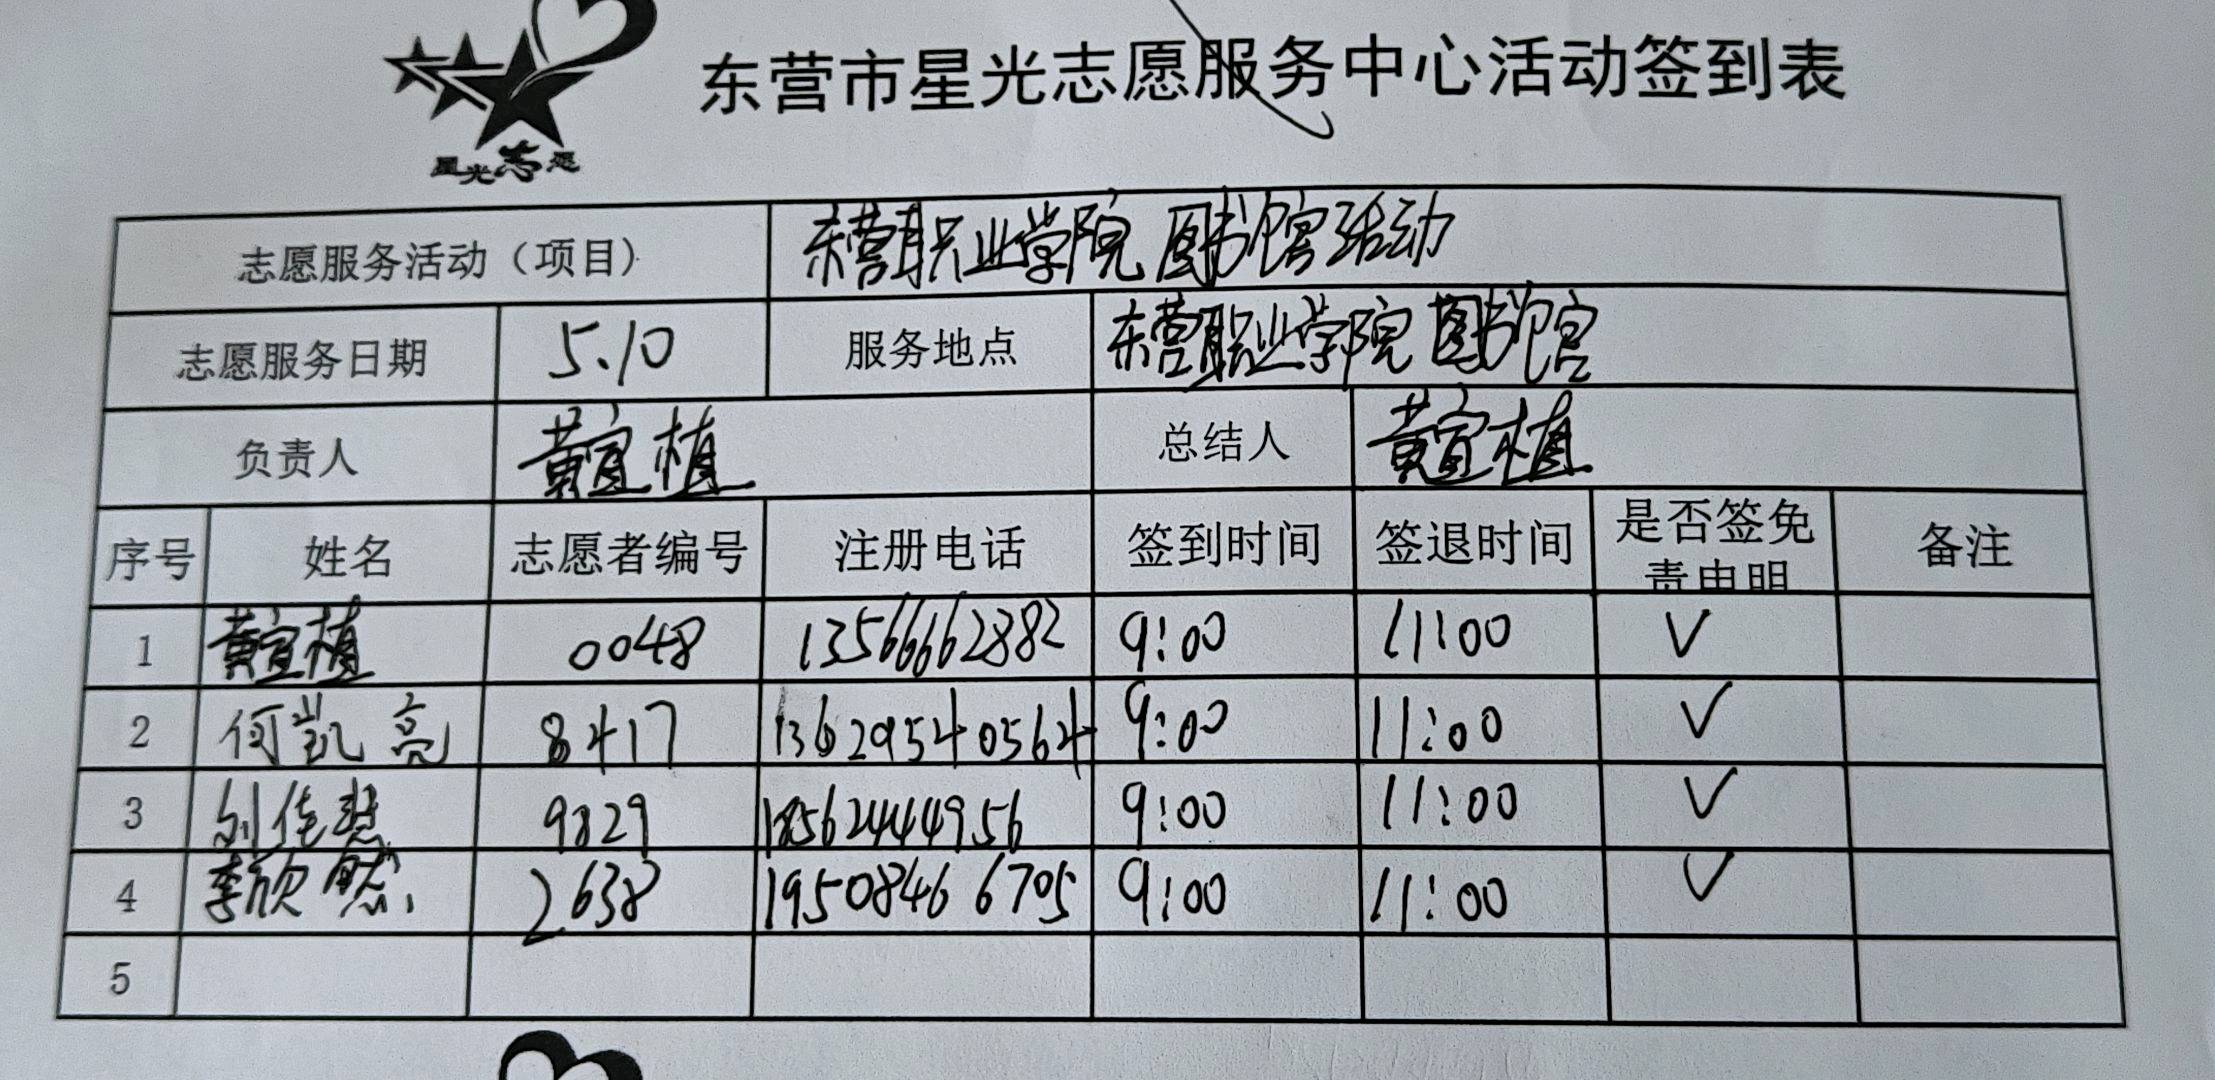 东营市星光志愿服务中心活动签到表
星光志愿
志愿服务活动（项目） 东营职业学院图书馆活动
志愿服务日期 5.10 服务地点 东营职业学院图书馆
负责人 黄宜植 总结人 黄宜植
序号 姓名 志愿者编号 注册电话 签到时间 签退时间 是否签免责申明 备注
1 黄宜植 0048 13566662882 9:00 11:00 √
2 何凯亮 8417 13629540564 9:00 11:00 √
3 刘佳慧 9829 18562444956 9:00 11:00 √
4 李欣然 2638 19508466705 9:00 11:00 √
5